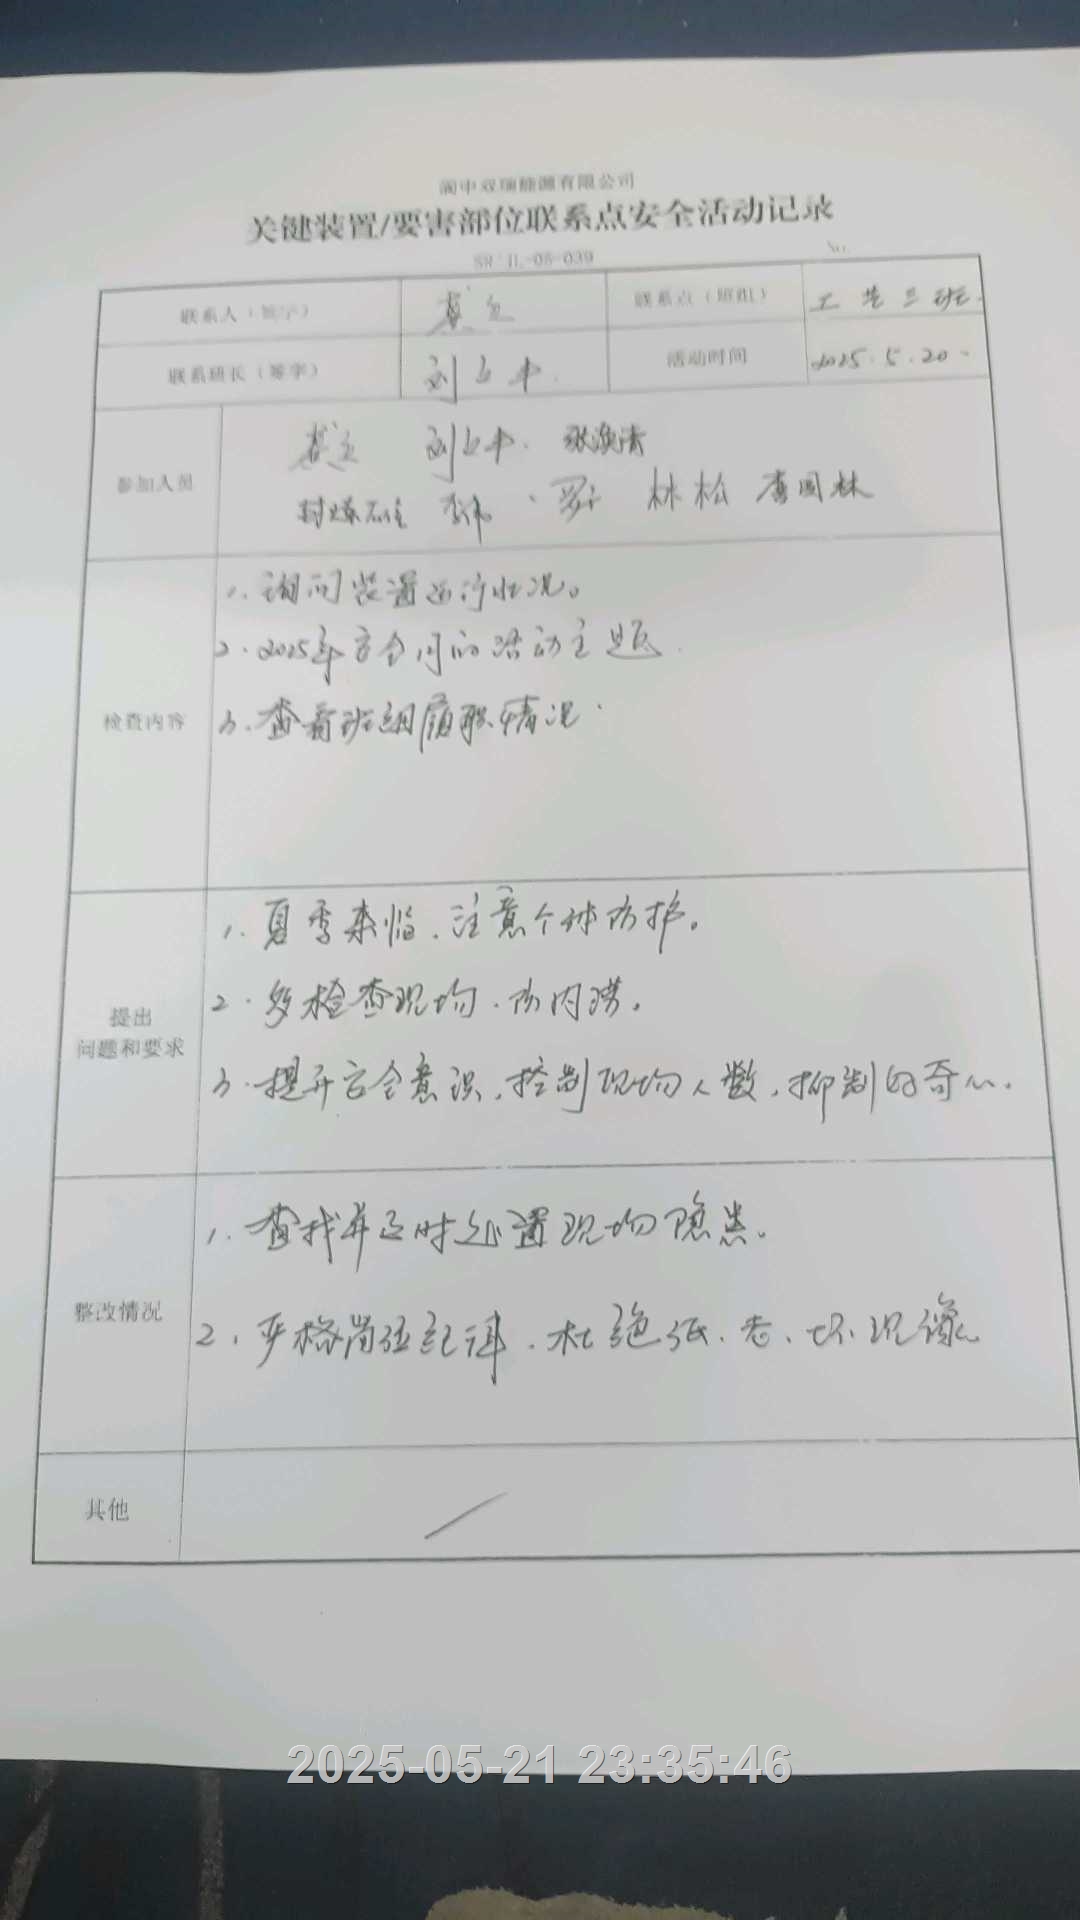 阆中双瑞能源有限公司
关键装置/要害部位联系点安全活动记录
SR/JL-05-039 No.
联系人（签字） 联系点（班组） 工艺三班.
联系班长（签字） 刘立中. 活动时间 2025.5.20.
参加人员
刘立中. 张焕清
林松 李国林
检查内容
1. 询问装置运行状况。
2. 2025年安全月的活动主题.
3. 查看班组履职情况.
提出
问题和要求
1. 夏季来临、注意个体防护。
2. 多检查现场、防内涝。
3. 提升安全意识，控制现场人数，抑制好奇心.
整改情况
1. 查找并及时处置现场隐患。
2. 严格岗位纪律、杜绝低、老、坏现像
其他 /
2025-05-21 23:35:46